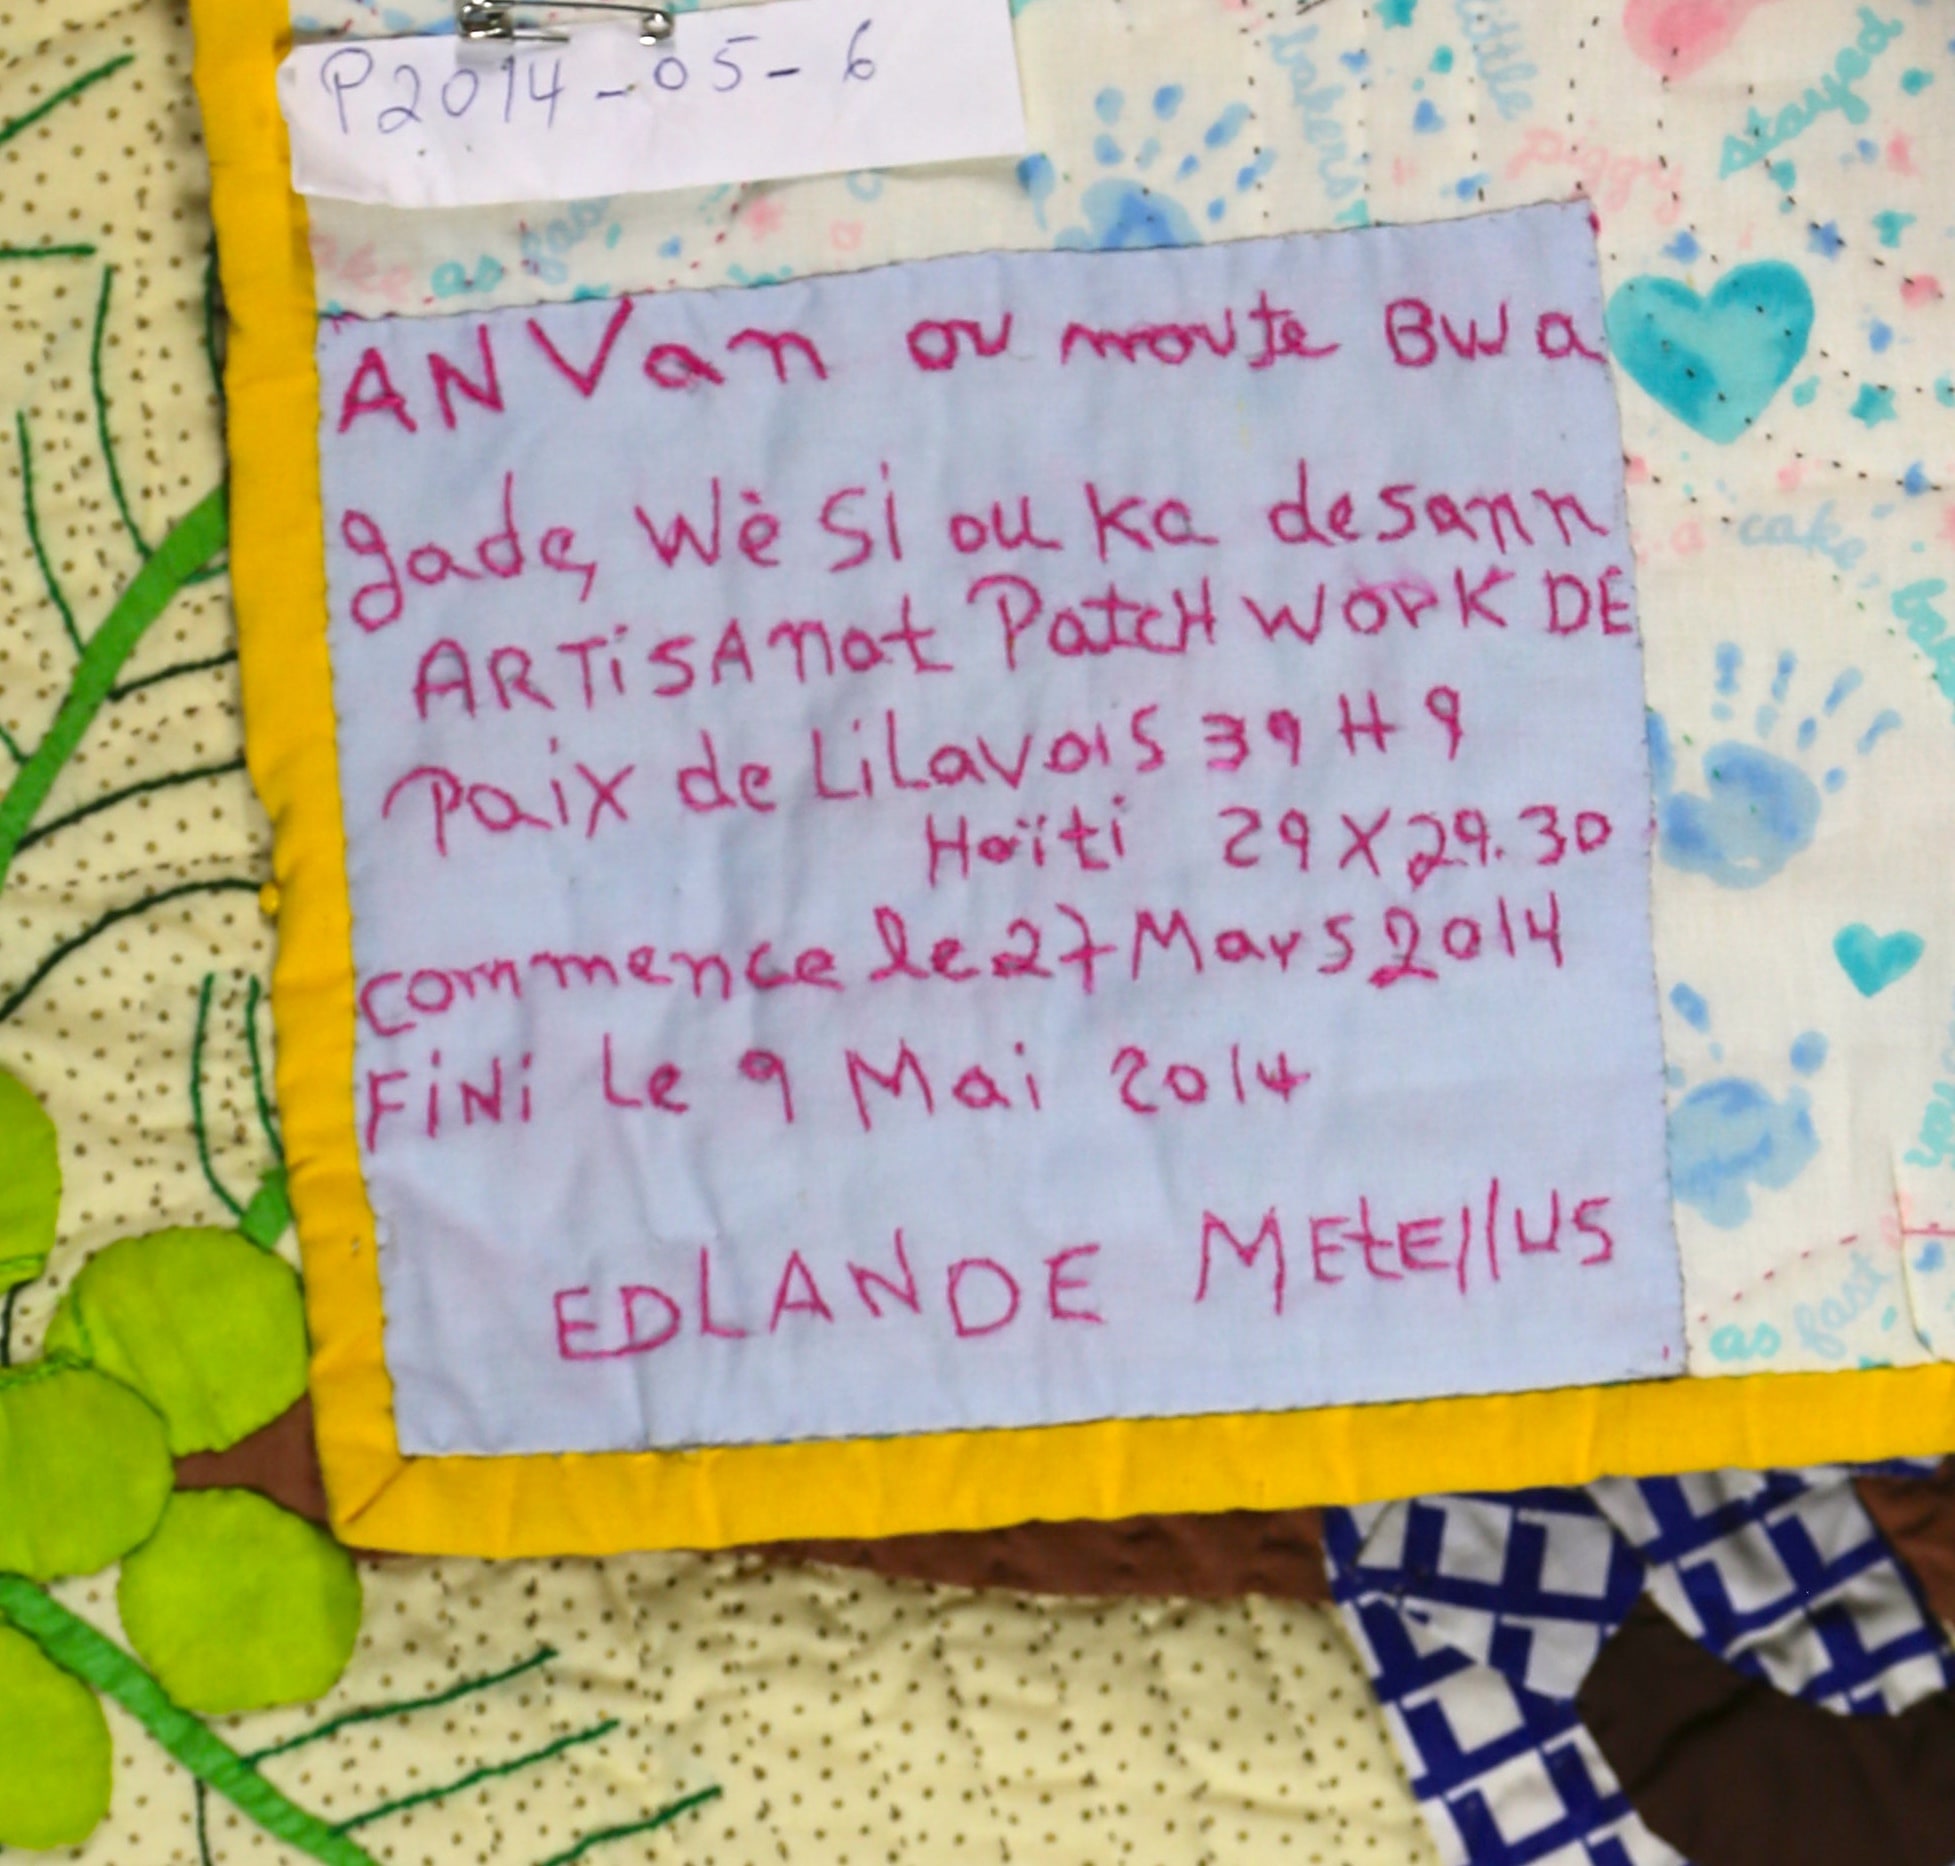 P2014-05-6
ANVan ou moute Bwa
gade, wè si ou ka desann
ARTiSAnat PatcH WorK DE
Paix de LiLavois 39 H 9
Haïti 29 X 29.30
commence le 27 Mars 2014
FiNi Le 9 Mai 2014
EDLANDE MEtEllUS
as fast
bakers
little
piggy
stayed
a
cake,
as fast